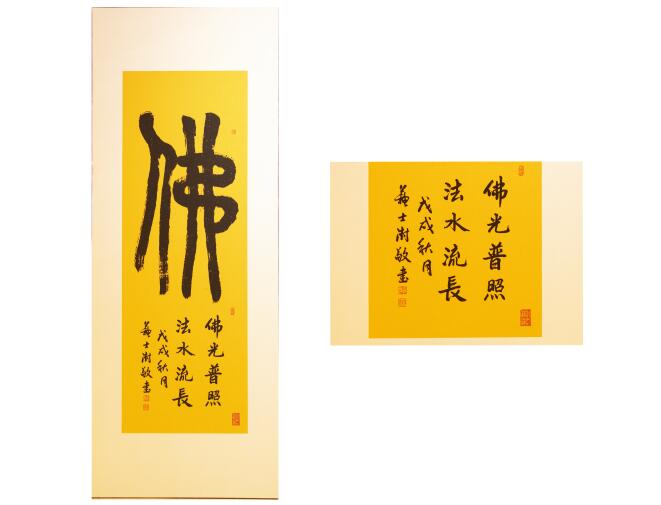 佛
佛光普照
法水流長
戊戌秋月
蘇士澍敬書
佛光普照
法水流長
戊戌秋月
蘇士澍敬書